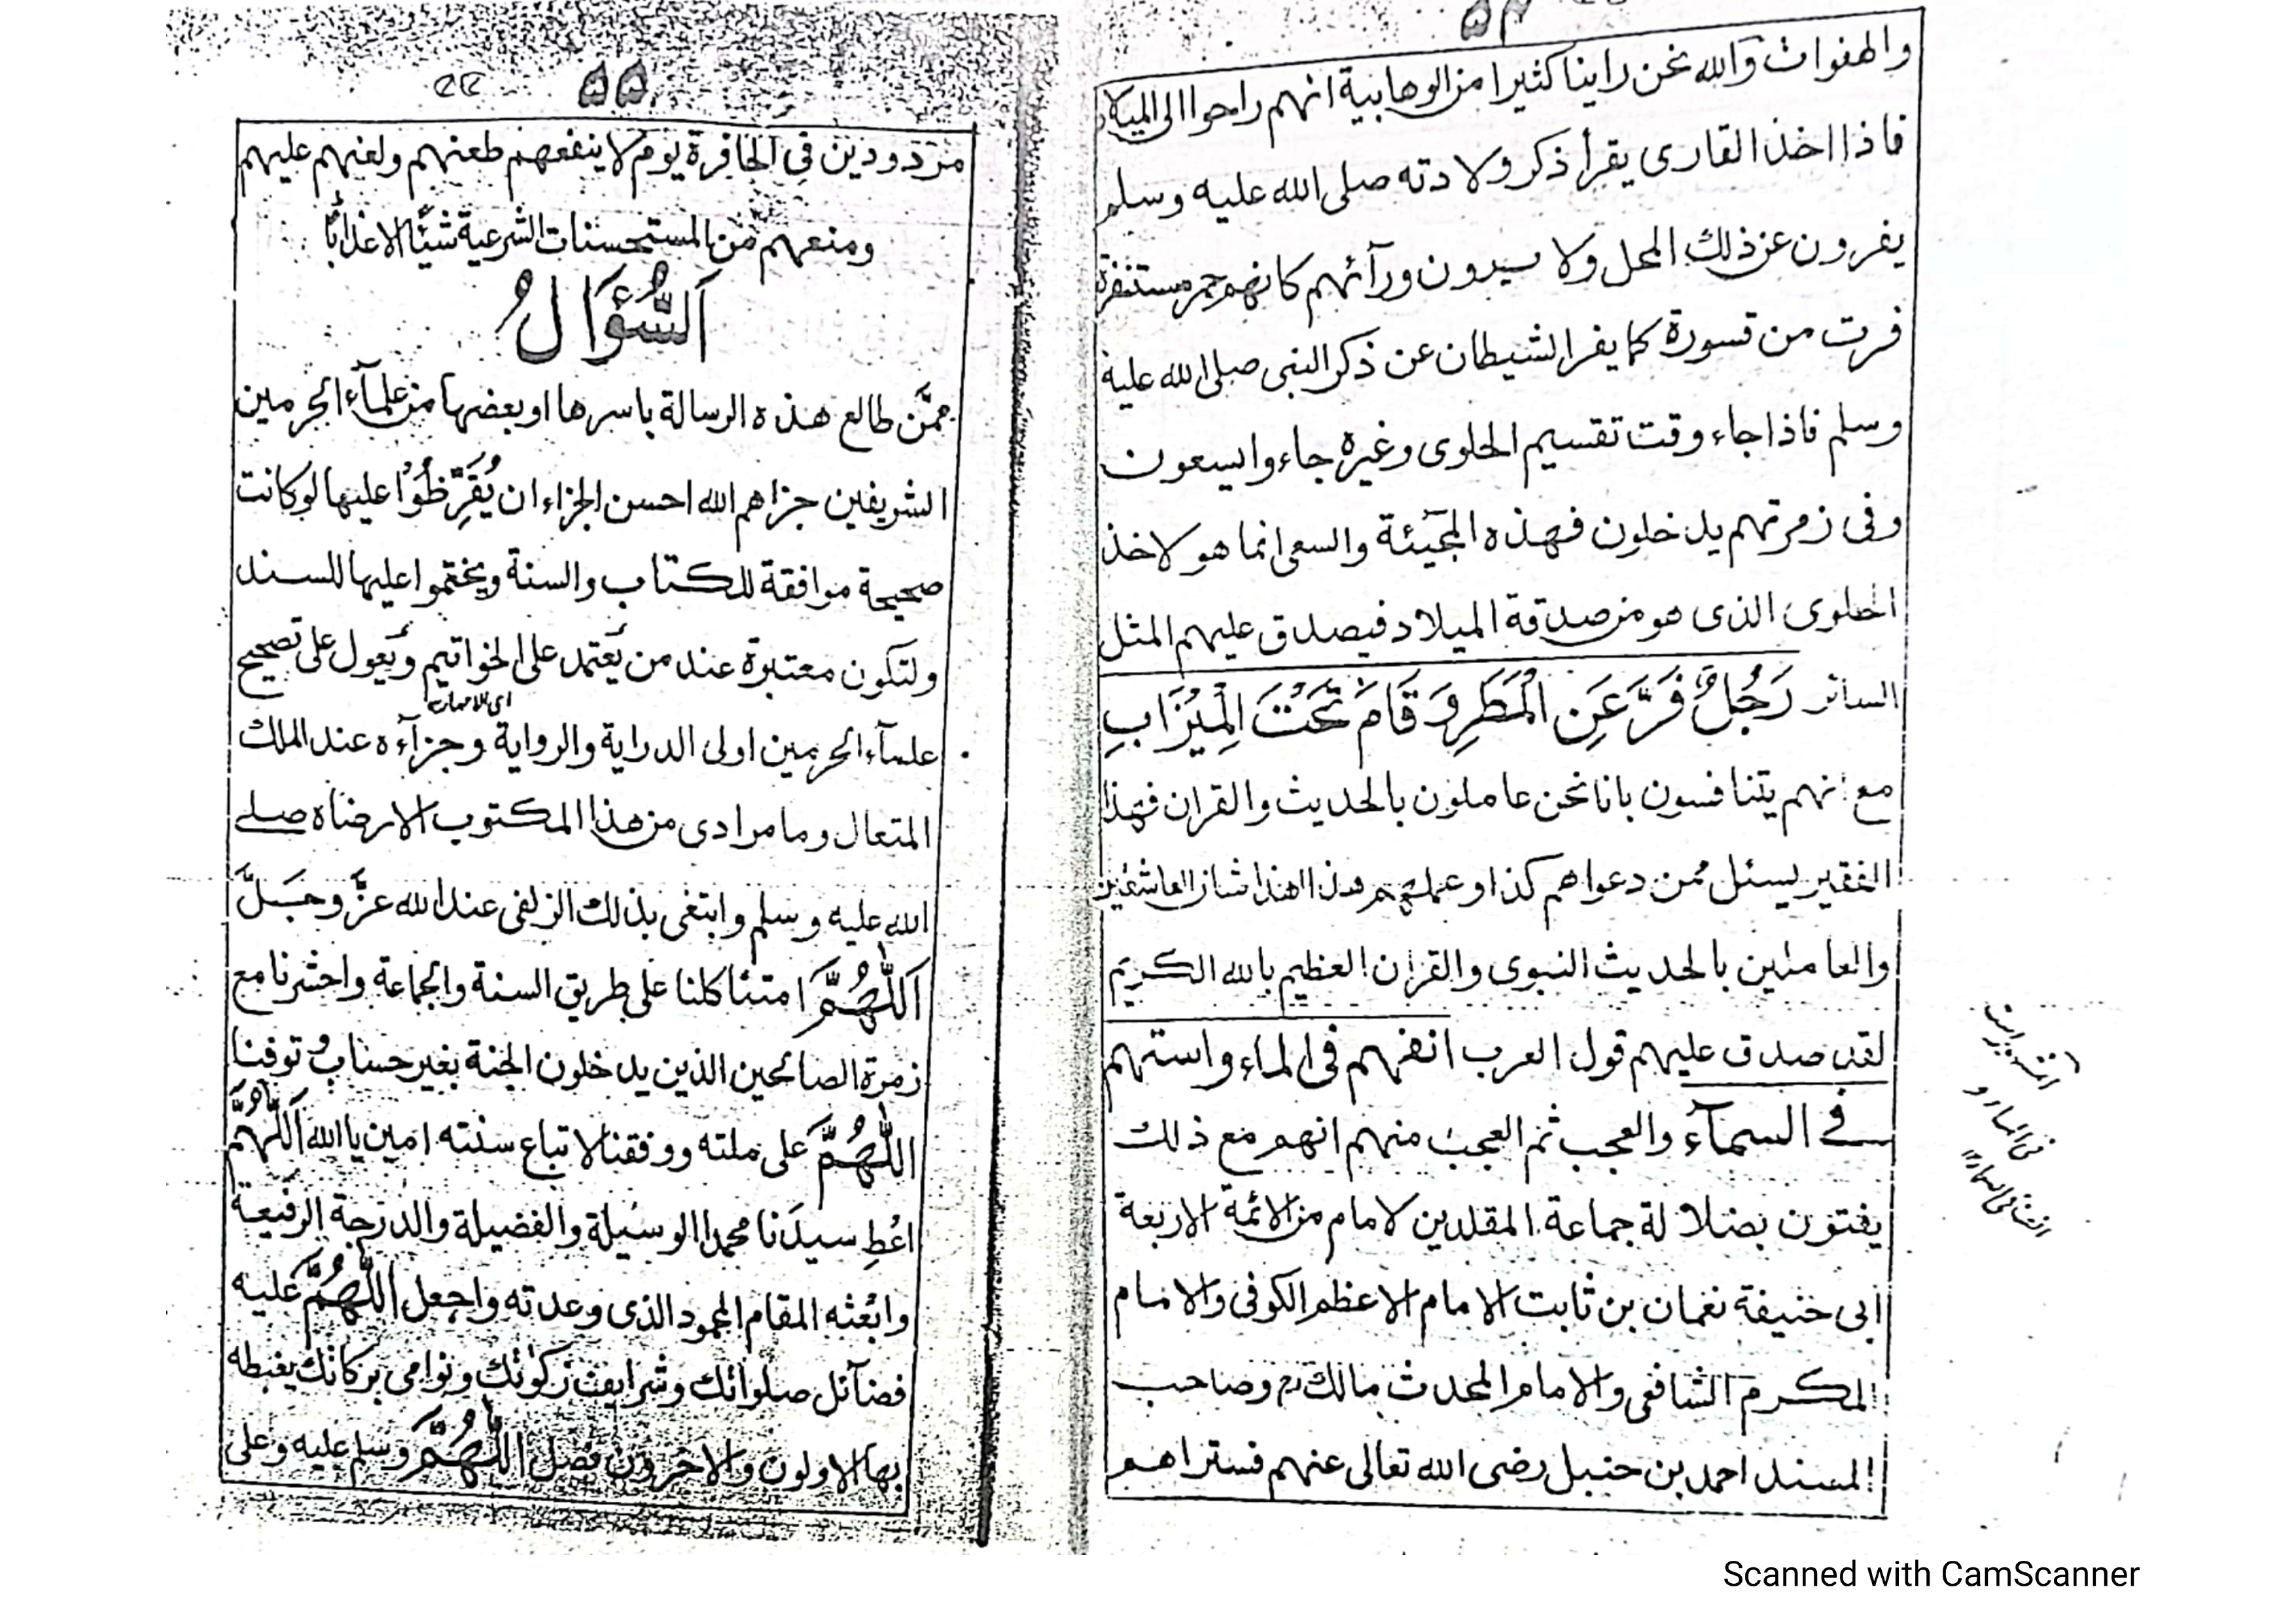 ۵۴
والهفوات والله نحن راينا كثيرا من الوهابية انهم راحوا الى الميلاد
فاذا اخذ القارى يقرأ ذكر ولادته صلى الله عليه وسلم
يفرون عن ذلك المحل ولا ورآئهم كانهم حمر مستنفرة
فرت من قسورة كما يفر الشيطان عن ذكر النبى صلى الله عليه
وسلم فاذا جاء وقت تقسيم الحلوى وغيره جاءوا يسعون
وفى زمرتهم يدخلون فهذه المجيئة والسعى انما هو لاخذ
الحلوى الذى هو من صدقة الميلاد فيصدق عليهم المثل
السائر رَجُلٌ فَرَّ عَنِ الْمَطَرِ وَقَامَ تَحْتَ الْمِيْزَابِ
مع انهم يتنافسون بانا نحن عاملون بالحديث والقران فهذا
الفقير يسئل ممن دعواهم كذا وعملهم هذا اهذا شان العاشقين
والعاملين بالحديث النبوى والقران العظيم بالله الكريم
لقد صدق عليهم قول العرب انفهم فى الماء واستهم
فے السمآء والعجب ثم العجب منهم انهم مع ذلك
يفتون بضلالة جماعة المقلدين لامام من الائمة الاربعة
ابى حنيفة نعمان بن ثابت الامام الاعظم الكوفى والامام
المكرم الشافعى والامام المحدث مالك وصاحب
المسند احمد بن حنبل رضى الله تعالى عنهم فستراهم
۵۵
مردودين فى الحافرة يوم لا ينفعهم طعنهم ولعنهم عليهم
ومنعهم من المستحسنات الشرعية شيئا الا عذابا
اَلسُّؤَالُ
ممَّن طالع هذه الرسالة باسرها او بعضها من علمآء الحرمين
الشريفين جزاهم الله احسن الجزاء ان يُقَرِّظُوْا عليها لو كانت
صحيحة موافقة للكتاب والسنة ويختموا عليها للسند
ولتكون معتبرة عند من يَعتمد على الخواتيم ويَعول على تصحيح
علمآء الحرمين اولى الدراية والرواية وجزآءه عند الملك
المتعال وما مرادى من هذا المكتوب الا رضاه صلے
الله عليه وسلم وابتغى بذلك الزلفى عند الله عزَّ وجَلَّ
اَللّٰهُمَّ امتنا كلنا على طريق السنة والجماعة واحشرنا مع
زمرة الصالحين الذين يدخلون الجنة بغير حساب وتوفنا
اللّٰهُمَّ على ملته ووفقنا لاتباع سنته امين يا الله اَللّٰهُمَّ
اعْطِ سيدَنا محمدا الوسيلة والفضيلة والدرجة الرفيعة
وابْعثه المقام المحمود الذى وعدته واجعل اللّٰهُمَّ عليه
فضآئل صلواتك وشرايف زكوتك ونوامى بركاتك يغبطه
بها الاولون والاخرون فصل اللّٰهُمَّ وسلم عليه وعلى
Scanned with CamScanner